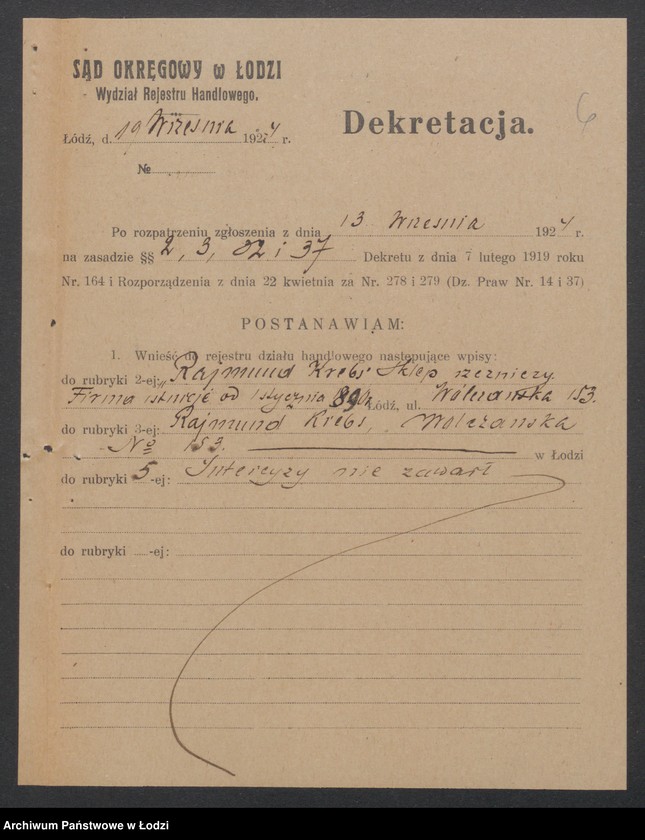 SĄD OKRĘGOWY w ŁODZI
Wydział Rejestru Handlowego.
6
Dekretacja.
Łódź, d. 19 Września 1924 r.
№
Po rozpatrzeniu zgłoszenia z dnia 13 Wrzesnia 1924 r.
na zasadzie §§ 2, 3, 32 i 37 Dekretu z dnia 7 lutego 1919 roku
Nr. 164 i Rozporządzenia z dnia 22 kwietnia za Nr. 278 i 279 (Dz. Praw Nr. 14 i 37)
POSTANAWIAM:
1. Wnieść do rejestru działu handlowego następujące wpisy:
do rubryki 2-ej: „Rajmund Krebs" Sklep rzeźniczy.
Firma istnieje od 1 stycznia Łódź, ul. Wólczańska 153.
do rubryki 3-ej: Rajmund Krebs, Wólczańska
№ 153. w Łodzi
do rubryki 5-ej: Intercyzy nie zawarł
do rubryki -ej:
Archiwum Państwowe w Łodzi